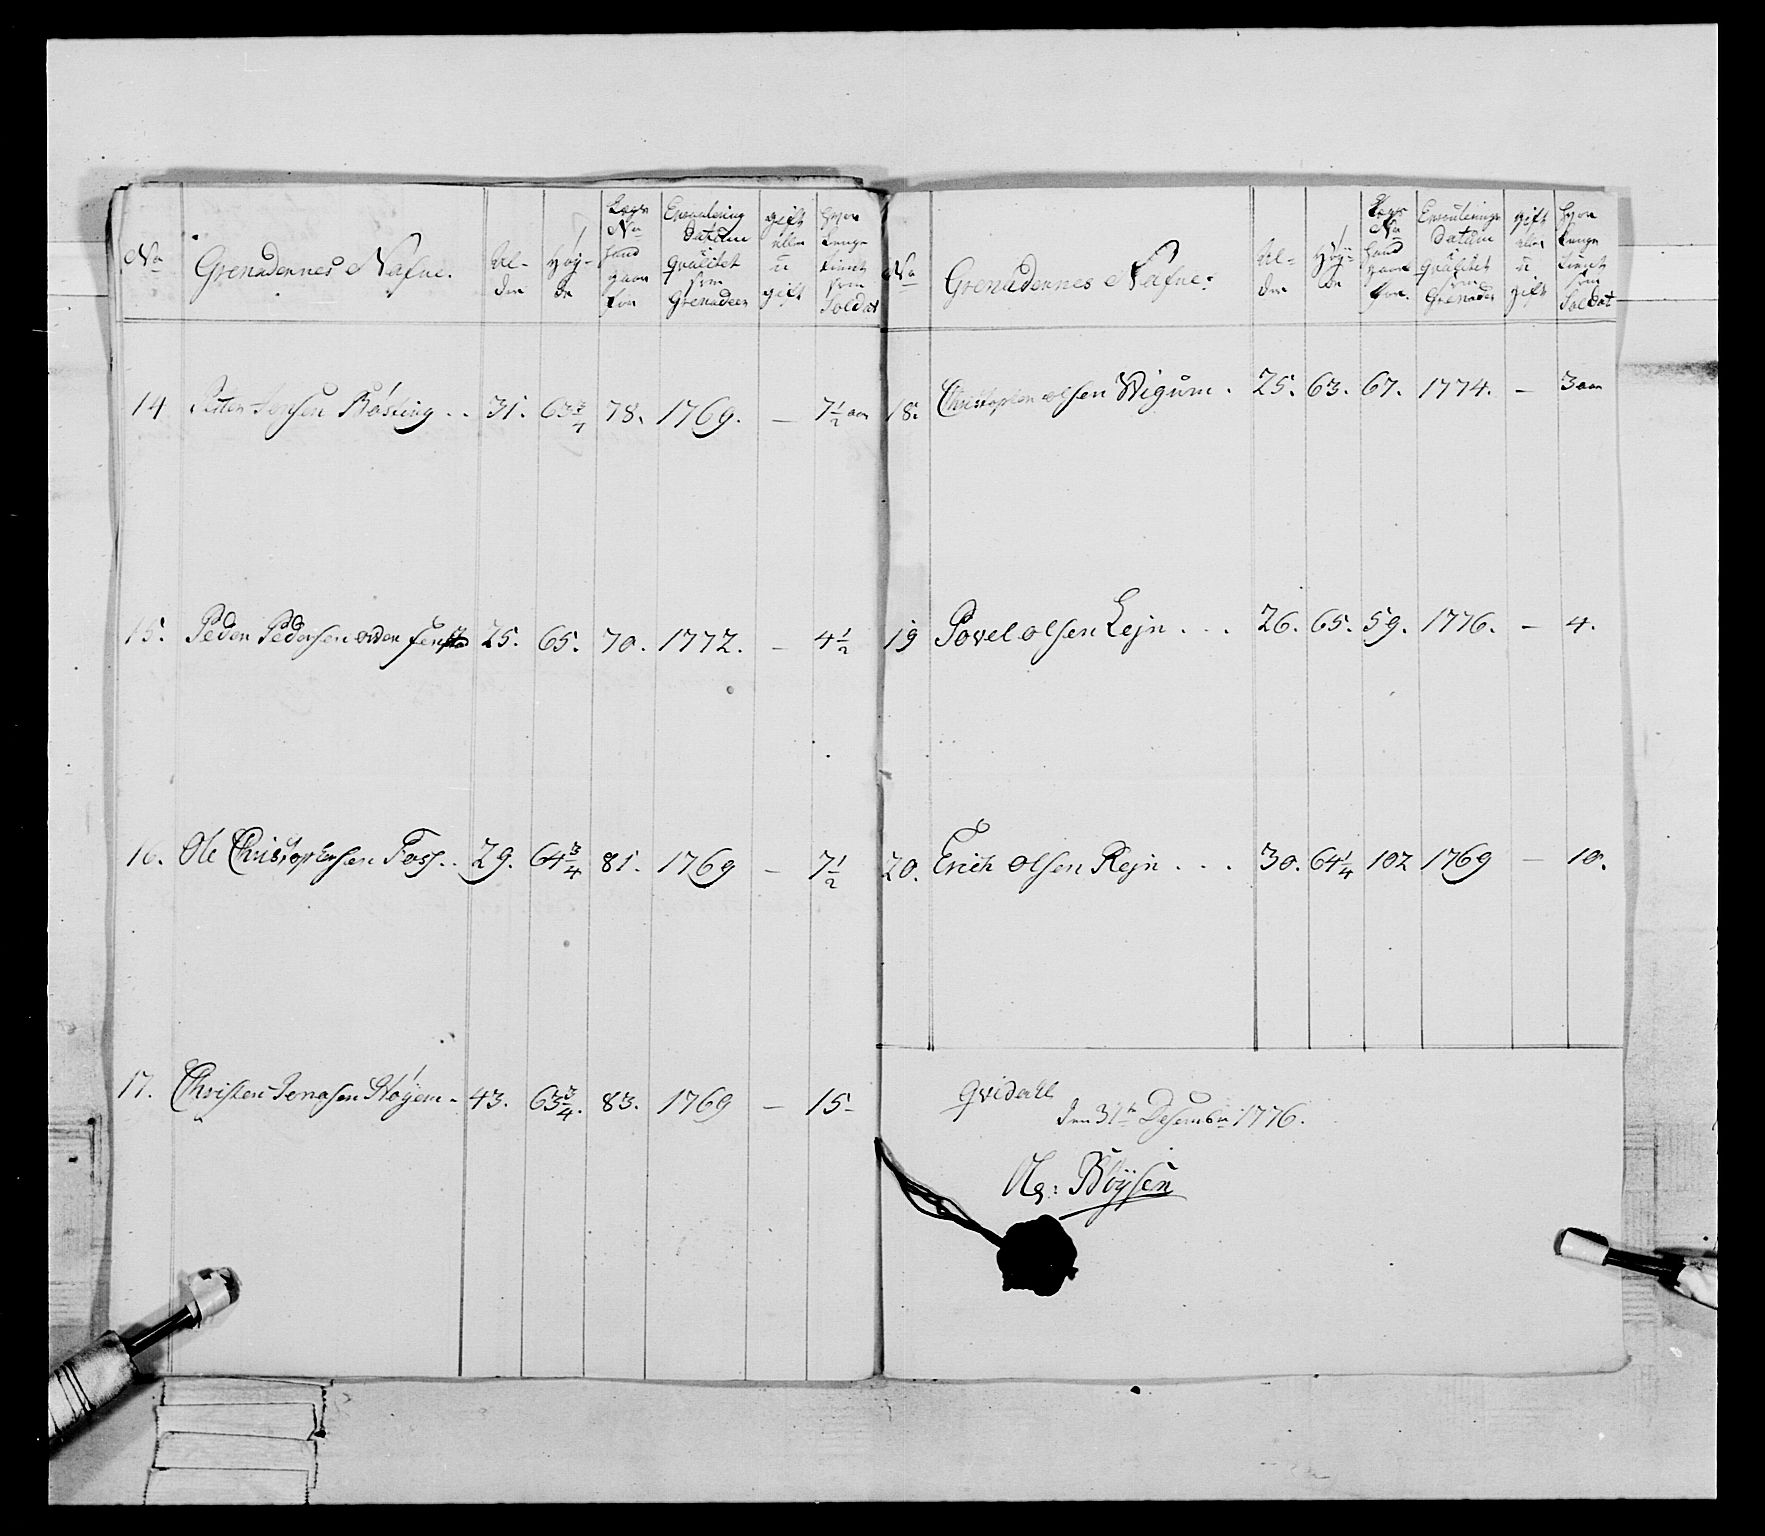 No
Grenadernes Nafne.
Al-
der
Høy-
de
Lægs
No
hand
gaar
for
datum
qvalitet
som
Grenadeer
gift
eller
u
gift
hvor
lenge
tient
som
Soldat
14. Petter Jensen Røsting . . 31. 63 3/4 78. 1769. — 7 1/2 aar
15. Peder Pedersen 25. 65. 70. 1772. — 4 1/2
16. Ole Christophersen Foss . . 29. 64 3/4 81. 1769 — 7 1/2
17. Christen Jonasen Høyem - 43. 63 3/4. 83. 1769 — 15-
No
Grenadernes Nafne.
Al-
der
Høy-
de
Lægs
No
hand
gaar
for.
datum
qvalitet
som
Grenader
gift
eller
u
gift
hvor
lenge
tient
som
Soldat
18. Christopher Olsen Wigum . 25. 63. 67. 1774. — 3 aar
19 Povel Olsen Lejn . . . 26. 65. 59. 1776. — 4.
20. Erich Olsen Rejn . . . 30. 64 1/4 102 1769 — 10.
Qvidahl
den 31te Desember 1776.
Bøysen